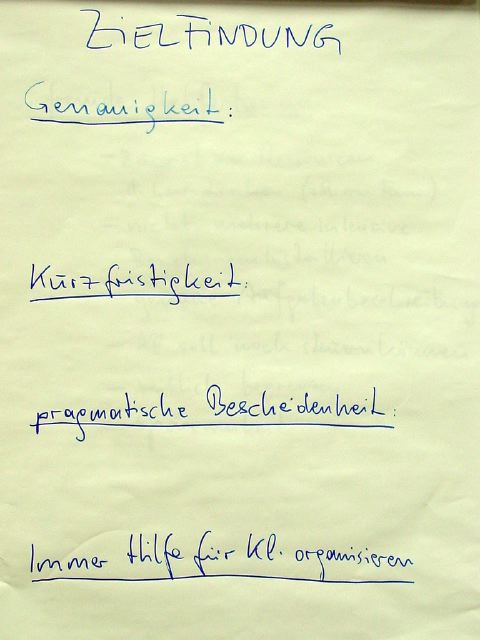 ZIELFINDUNG
Genauigkeit:
Kurzfristigkeit:
pragmatische Bescheidenheit:
Immer Hilfe für Kl. organisieren